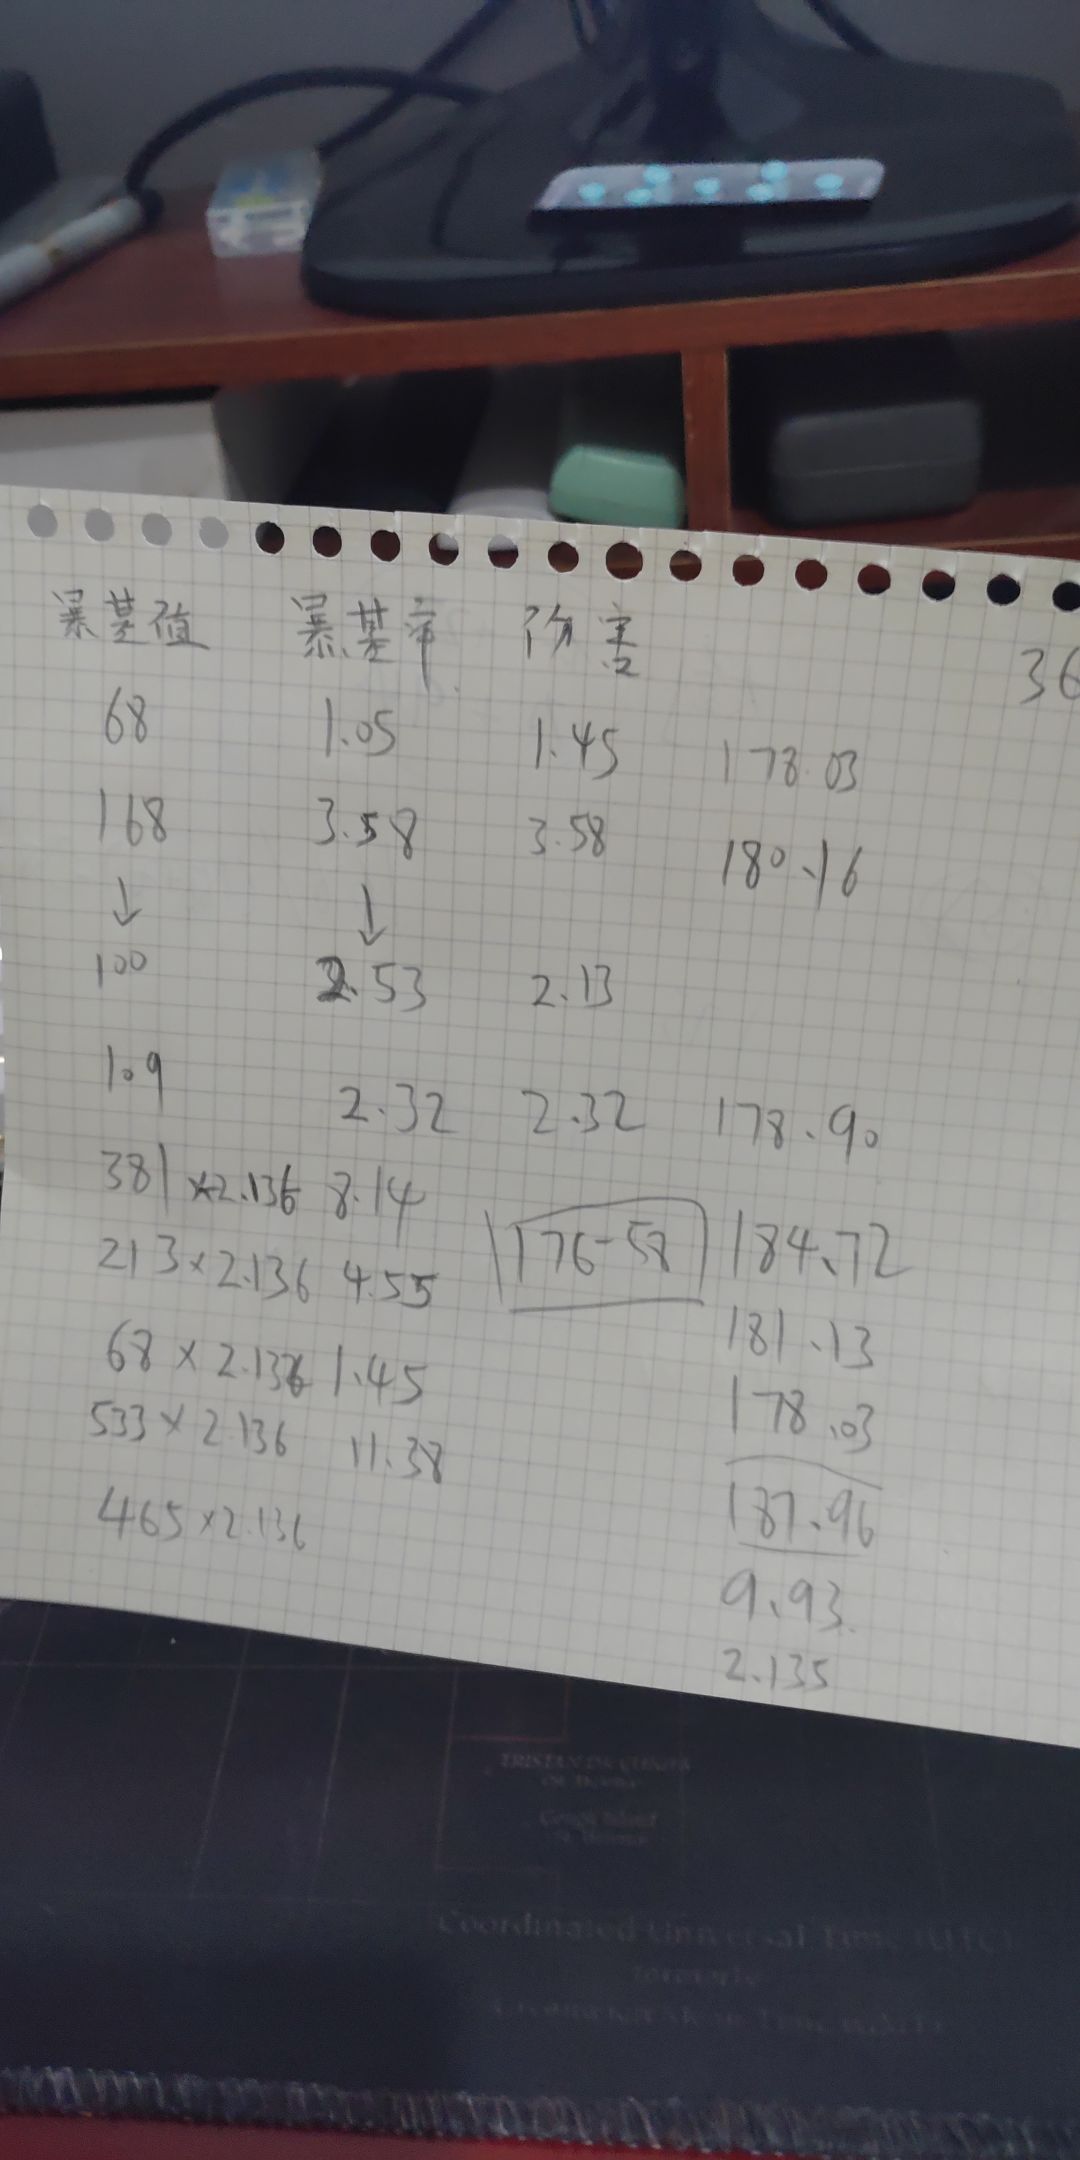 暴击值 暴击率 伤害
36
68 1.05 1.45 178.03
168 3.58 3.58 180.16
↓ ↓
100 2.53 2.13
109 2.32 2.32 178.90
381×2.136 8.14 176.58 184.72
213×2.136 4.55 181.13
68×2.136 1.45 178.03
533×2.136 11.38 187.96
465×2.136 9.93
2.135
TRISTAN DA CUNHA
Coordinated Universal Time (UTC)